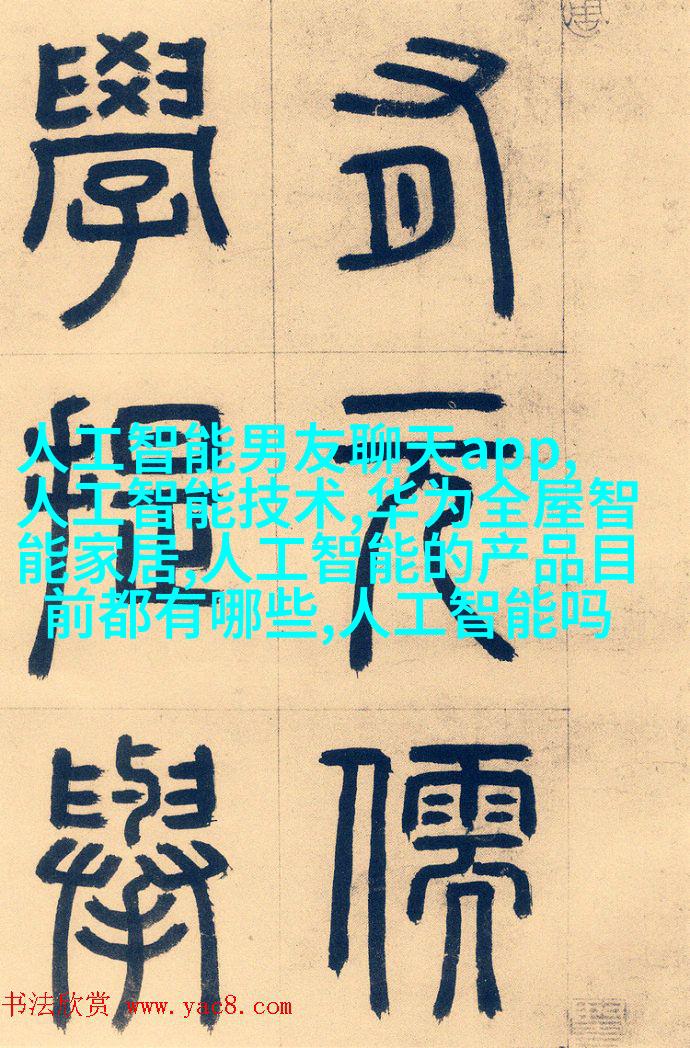 有元儒
學提舉
人工智能男友聊天app,
人工智能技术,华为全屋智
能家居,人工智能的产品目
前都有哪些,人工智能吗
书法欣赏 www.yac8.com